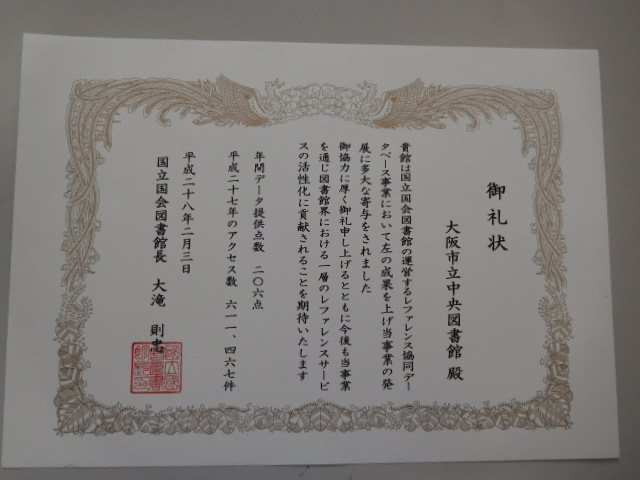 御礼状
大阪市立中央図書館 殿
貴館は国立国会図書館の運営するレファレンス協同デー
タベース事業において左の成果を上げ当事業の発
展に多大な寄与をされました
御協力に厚く御礼申し上げるとともに今後も当事業
を通じ図書館界における一層のレファレンスサービ
スの活性化に貢献されることを期待いたします
年間データ提供点数 二〇六点
平成二十七年のアクセス数 六一一、四六七件
平成二十八年二月三日
国立国会図書館長 大滝 則忠